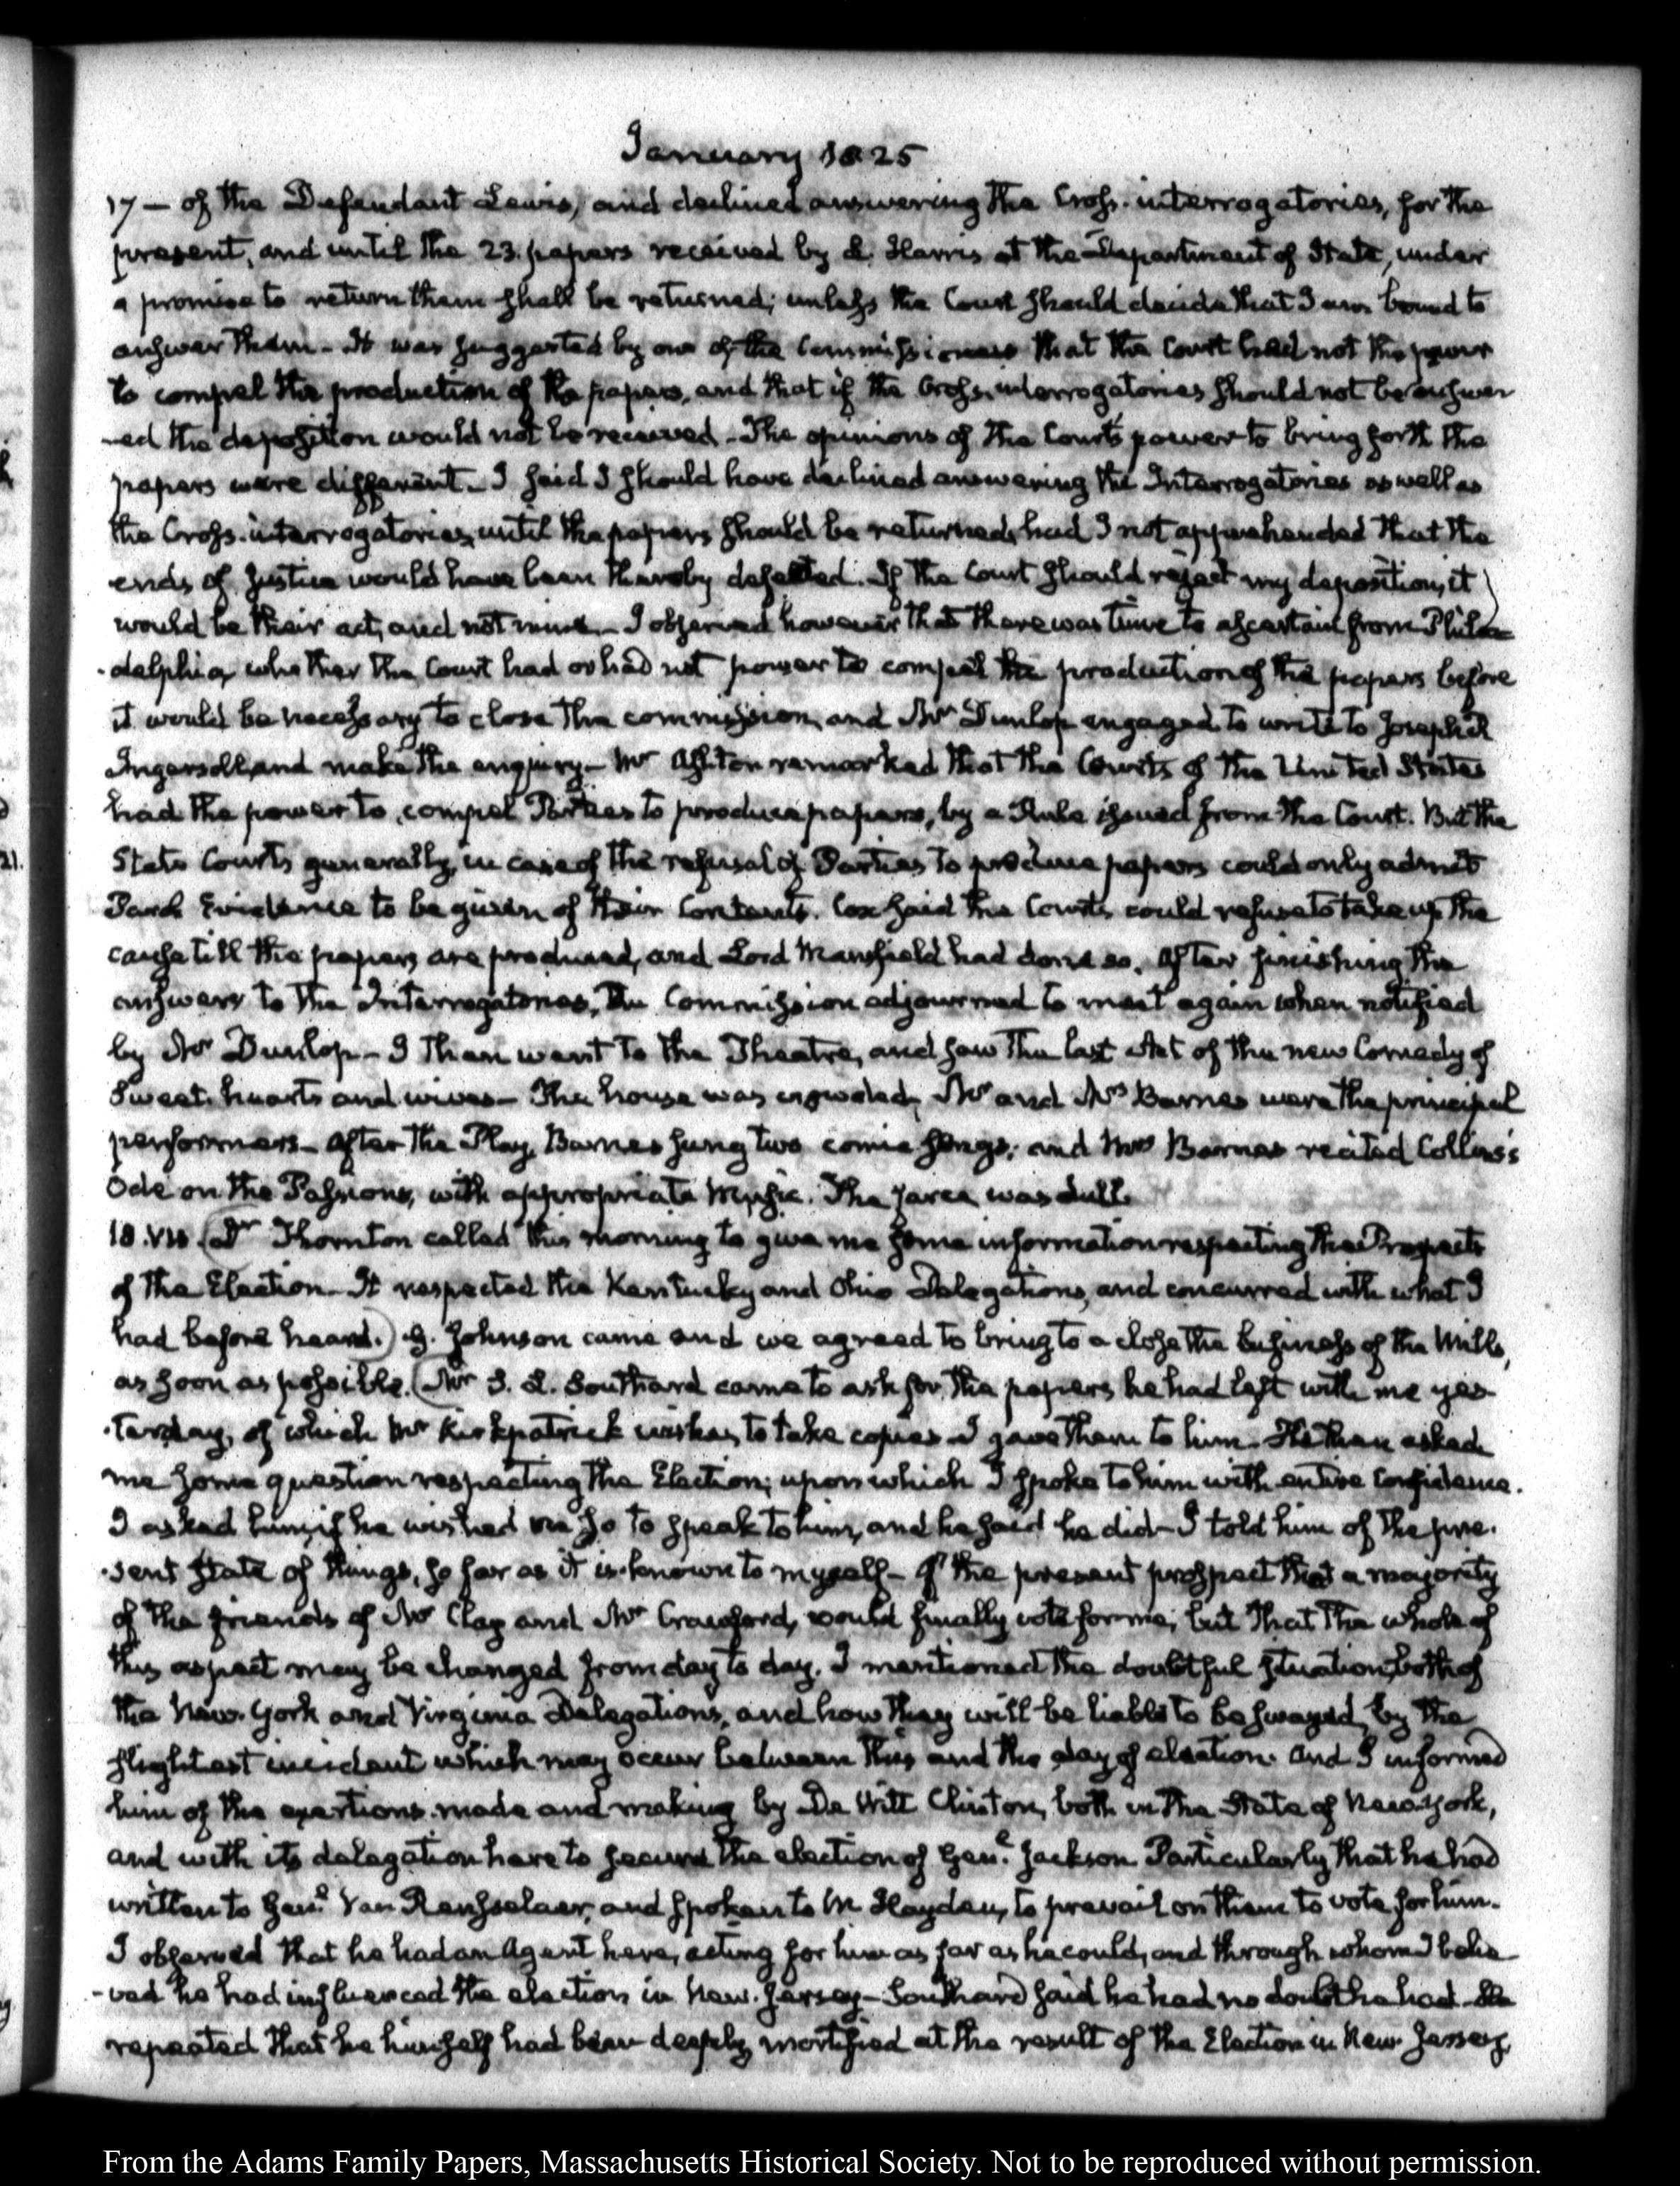 January 1825
17 — of the Defendant Lewis, and declined answering the Cross-interrogatories, for the
present, and until the 23. papers received by L. Harris at the Department of State, under
a promise to return them shall be returned; unless the Court should decide that I am bound to
answer them – It was suggested by one of the Commissioners that the Court had not the power
to compel the production of the papers, and that if the Cross-interrogatories should not be answer
-ed the deposition would not be received – The opinions of the Courts power to bring forth the
papers were different – I said I should have declined answering the Interrogatories as well as
the Cross-interrogatories, until the papers should be returned, had I not apprehended that the
ends of Justice would have been thereby defeated. If the Court should reject my deposition, it
would be their act, and not mine – I observed however that there was time to ascertain from Phila-
-delphia, whether the Court had or had not power to compel the production of the papers before
it would be necessary to close the commission, and Mr Dunlop engaged to write to Joseph R
Ingersoll, and make the enquiry – Mr Ashton remarked that the Courts of the United States
had the power to compel Parties to produce papers, by a Rule issued from the Court. But the
State Courts generally, in case of the refusal of Parties to produce papers could only admit
Parol Evidence to be given of their Contents. Coxe said the Courts could refuse to take up the
cause till the papers are produced, and Lord Mansfield had done so. After finishing the
answers to the Interrogatories, the Commission adjourned to meet again when notified
by Mr Dunlop – I then went to the Theatre, and saw the last Act of the new Comedy of
Sweet-hearts and wives – The house was crowded, Mr and Mrs Barnes were the principal
performers – After the Play, Barnes sung two comic songs; and Mrs Barnes recited Collins's
Ode on the Passions, with appropriate Music. The farce was dull.
18. VII. (Dr Thornton called this morning to give me some information respecting the Prospects
of the Election – It respected the Kentucky and Ohio Delegations, and concurred with what I
had before heard.) G. Johnson came and we agreed to bring to a close the business of the Mills,
as soon as possible. (Mr S. L. Southard came to ask for the papers he had left with me yes-
-terday, of which Mr Kirkpatrick wishes to take copies – I gave them to him – He then asked
me some question respecting the Election; upon which I spoke to him with entire confidence.
I asked him, if he wished me so to speak to him, and he said he did – I told him of the pre-
-sent state of things, so far as it is known to myself – Of the present prospect that a majority
of the friends of Mr Clay and Mr Crawford, would finally vote for me; but that the whole of
this aspect may be changed from day to day. I mentioned the doubtful situation, both of
the New-York and Virginia Delegations, and how they will be liable to be swayed, by the
slightest incident which may occur between this and the day of election. And I informed
him of the exertions made and making by De Witt Clinton, both in the State of New-York,
and with its delegation here to secure the election of Genl. Jackson. Particularly that he had
written to Genl. Van Rensselaer, and spoken to Mr Hayden, to prevail on them to vote for him.
I observed that he had an Agent here, acting for him as far as he could, and through whom I belie-
-ved he had influenced the election in New-Jersey – Southard said he had no doubt he had – He
repeated that he himself had been deeply mortified at the result of the Election in New Jersey,
From the Adams Family Papers, Massachusetts Historical Society. Not to be reproduced without permission.